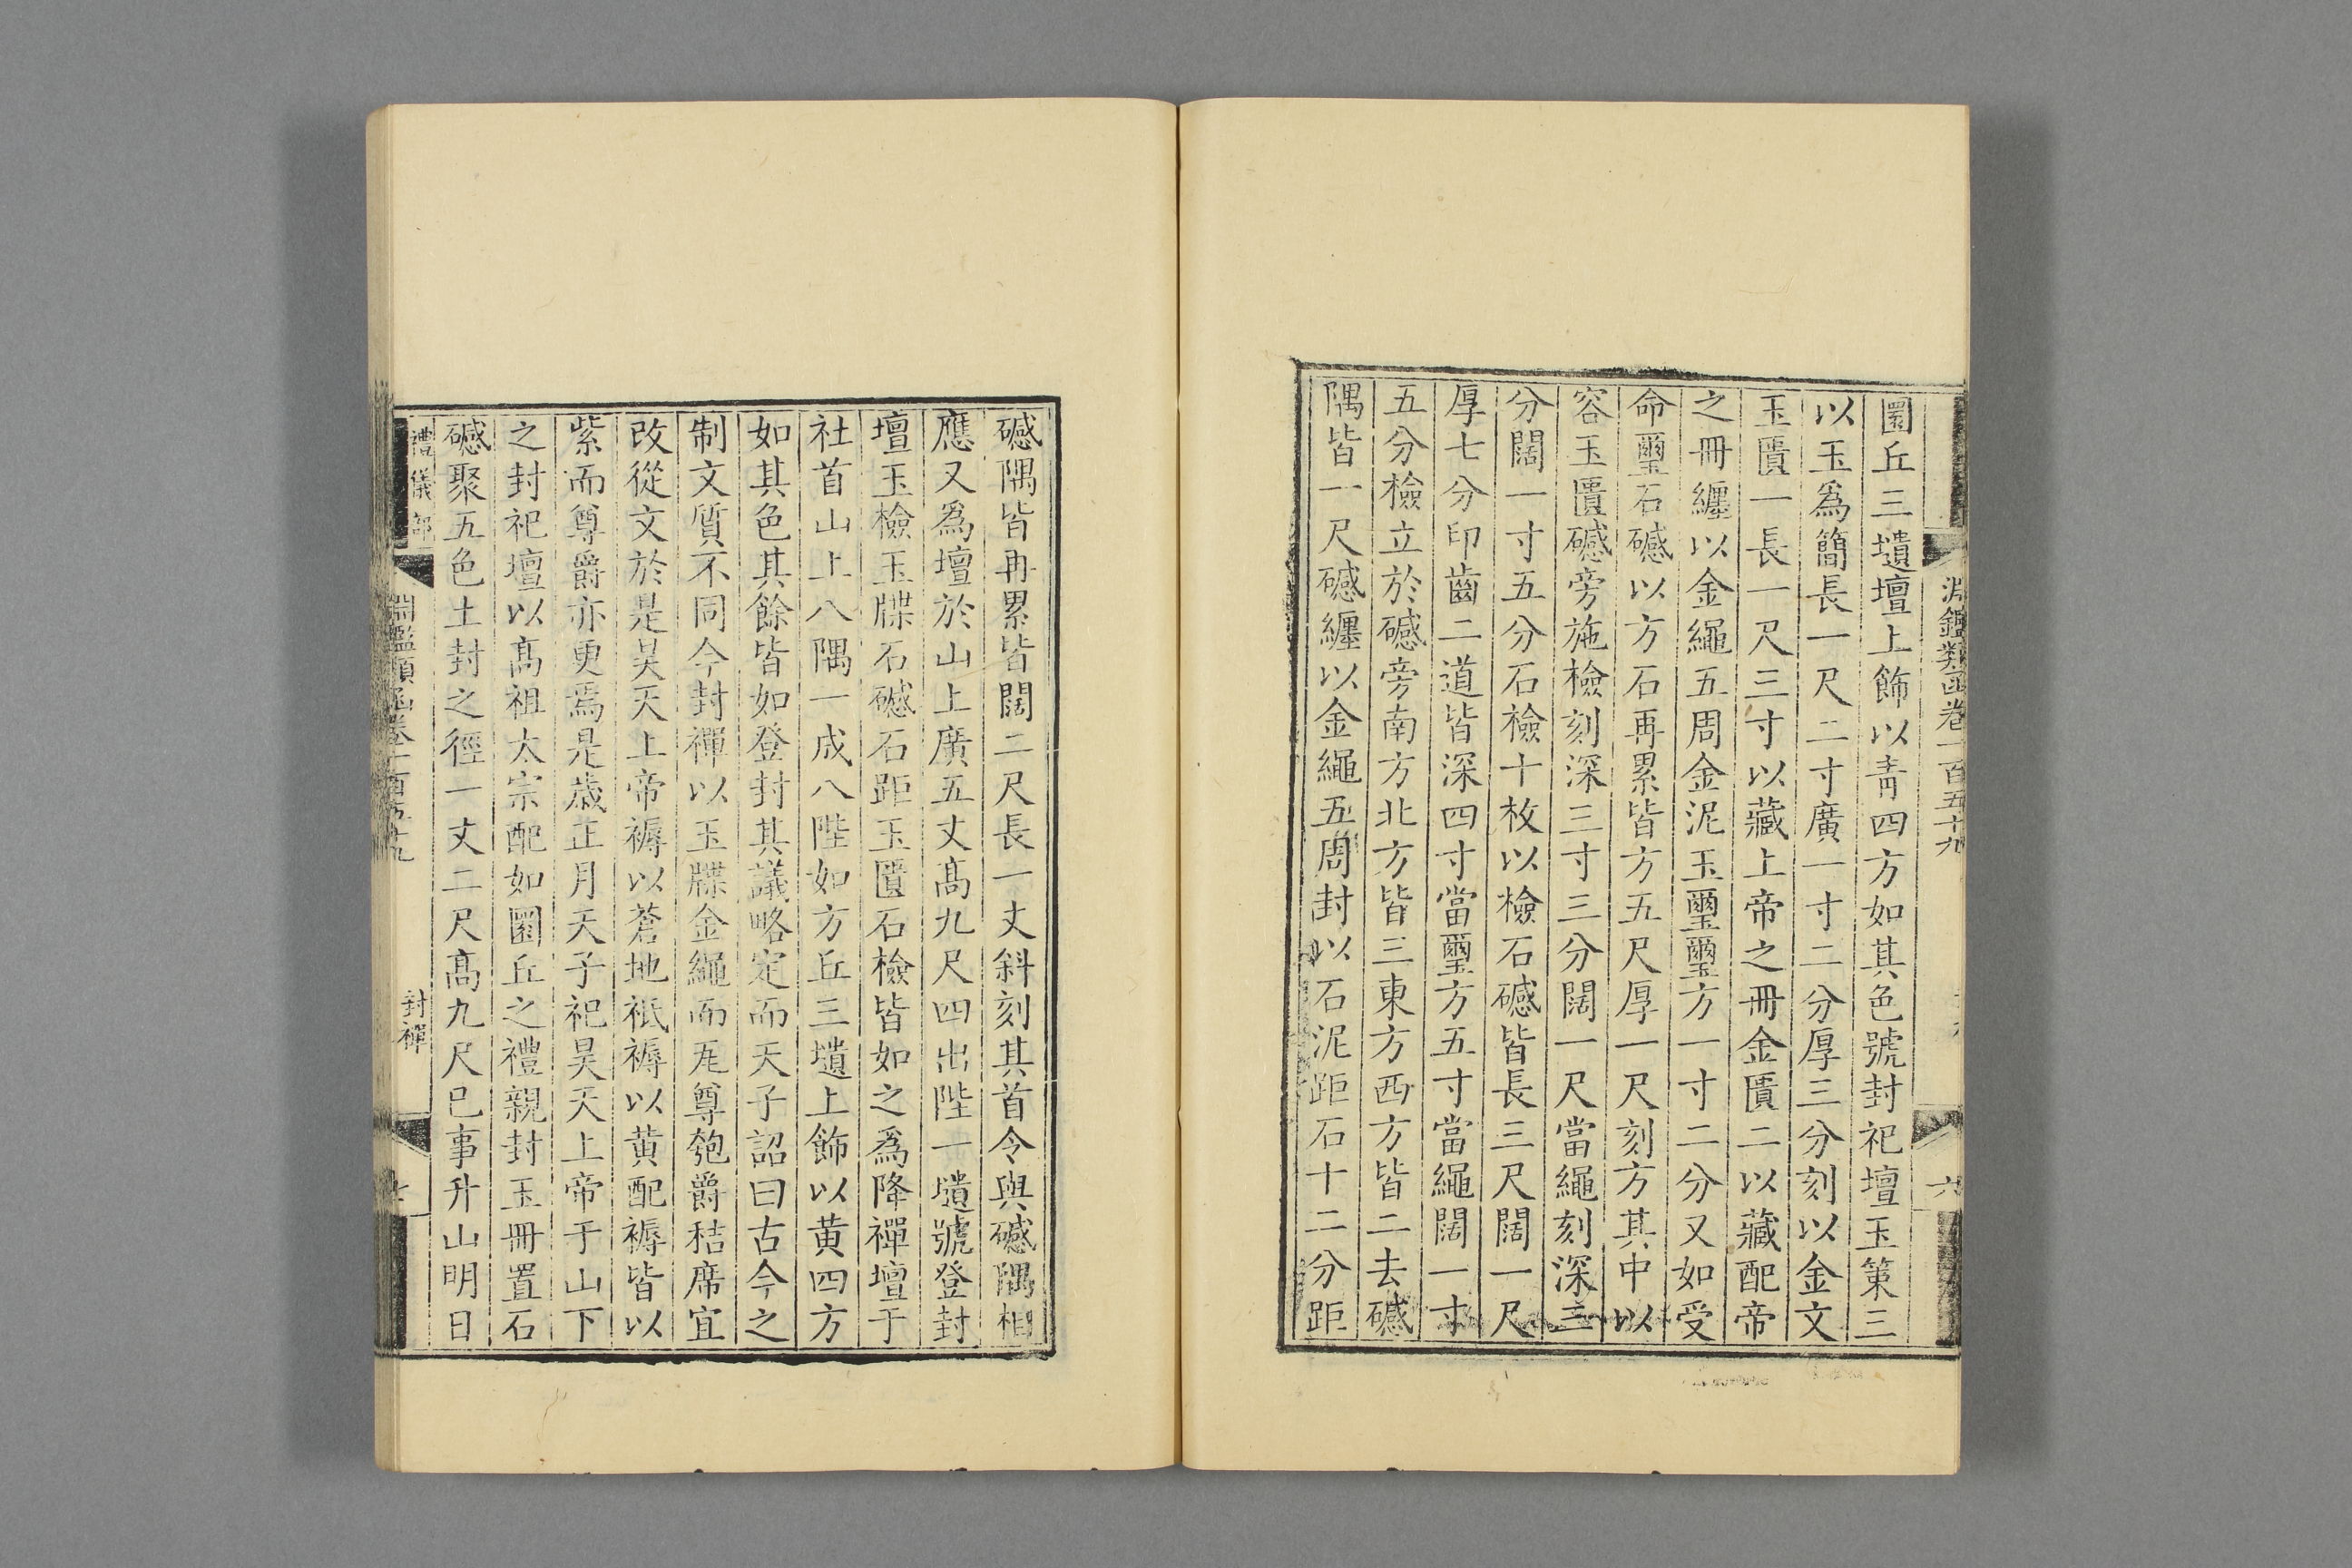 淵鑑類函卷一百五十九
六
圜丘三壝壇上飾以青四方如其色號封祀壇玉策三
以玉爲簡長一尺二寸廣一寸二分厚三分刻以金文
玉匱一長一尺三寸以藏上帝之冊金匱二以藏配帝
之冊纏以金繩五周金泥玉璽璽方一寸二分又如受
命璽石䃭以方石再累皆方五尺厚一尺刻方其中以
容玉匱䃭旁施檢刻深三寸三分闊一尺當繩刻深三
分闊一寸五分石檢十枚以檢石䃭皆長三尺闊一尺
厚七分印齒二道皆深四寸當璽方五寸當繩闊一寸
五分檢立於䃭旁南方北方皆三東方西方皆二去䃭
隅皆一尺䃭纏以金繩五周封以石泥距石十二分距
䃭隅皆再累皆闊二尺長一丈斜刻其首令與䃭隅相
應又爲壇於山上廣五丈高九尺四出陛一壝號登封
壇玉檢玉牒石䃭石距玉匱石檢皆如之爲降禪壇于
社首山上八隅一成八陛如方丘三壝上飾以黃四方
如其色其餘皆如登封其議略定而天子詔曰古今之
制文質不同今封禪以玉牒金繩而瓦尊匏爵秸席宜
改從文於是昊天上帝褥以蒼地祇褥以黃配褥皆以
紫而尊爵亦更焉是歲正月天子祀昊天上帝于山下
之封祀壇以高祖太宗配如圜丘之禮親封玉冊置石
䃭聚五色土封之徑一丈二尺高九尺已事升山明日
禮儀部
淵鑑類函卷一百五十九
封禪
七